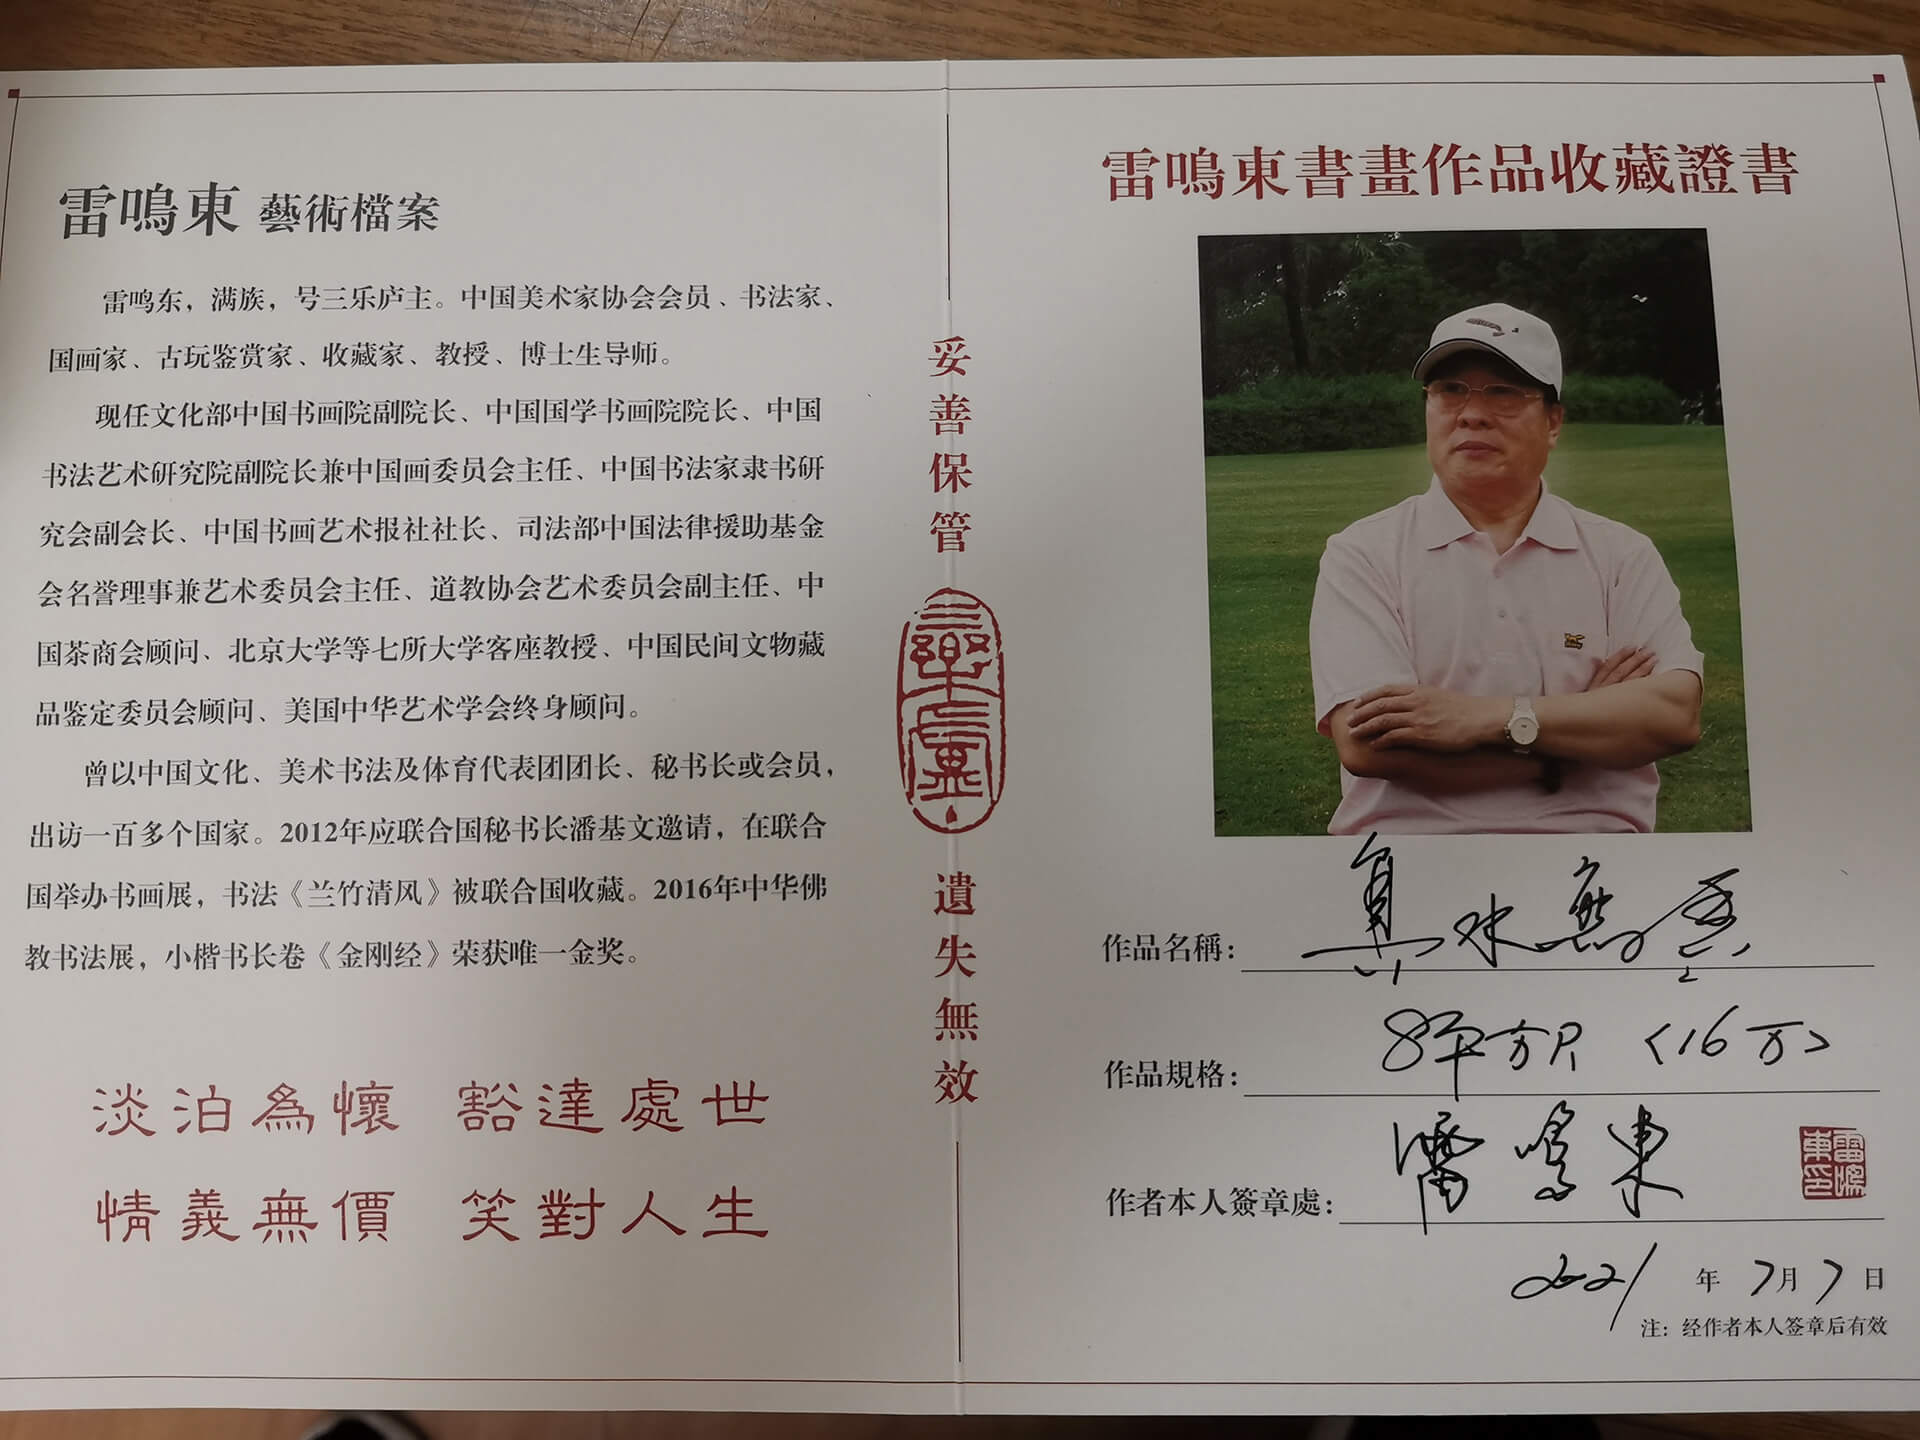 雷鳴東 藝術檔案
雷鸣东，满族，号三乐庐主。中国美术家协会会员、书法家、
国画家、古玩鉴赏家、收藏家、教授、博士生导师。
现任文化部中国书画院副院长、中国国学书画院院长、中国
书法艺术研究院副院长兼中国画委员会主任、中国书法家隶书研
究会副会长、中国书画艺术报社社长、司法部中国法律援助基金
会名誉理事兼艺术委员会主任、道教协会艺术委员会副主任、中
国茶商会顾问、北京大学等七所大学客座教授、中国民间文物藏
品鉴定委员会顾问、美国中华艺术学会终身顾问。
曾以中国文化、美术书法及体育代表团团长、秘书长或会员，
出访一百多个国家。2012年应联合国秘书长潘基文邀请，在联合
国举办书画展，书法《兰竹清风》被联合国收藏。2016年中华佛
教书法展，小楷书长卷《金刚经》荣获唯一金奖。
淡泊為懷 豁達處世
情義無價 笑對人生
妥善保管
三樂廬
遺失無效
雷鳴東書畫作品收藏證書
作品名稱：真水無香
作品規格：8平方尺〈16万〉
作者本人簽章處：雷鳴東
雷鳴東印
2021年7月7日
注：经作者本人签章后有效